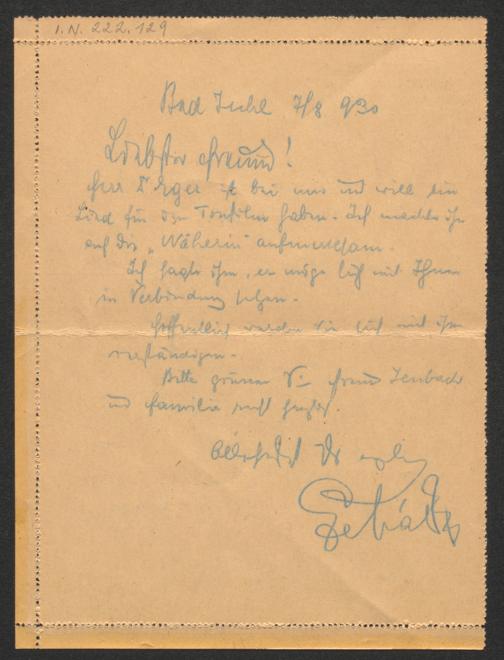 I. N. 222.129
Bad Ischl 7/8 930
Liebster Freund!
Herr Dr Eger ist bei uns und will ein
Lied für den Tonfilm haben. Ich machte ihn
auf die „Näherin" aufmerksam.
Ich sagte ihm, er möge sich mit Ihnen
in Verbindung setzen.
Hoffentlich werden Sie sich mit ihm
verständigen.
Bitte grüssen Sie Freund Jenbach
und Familie recht
Lehár